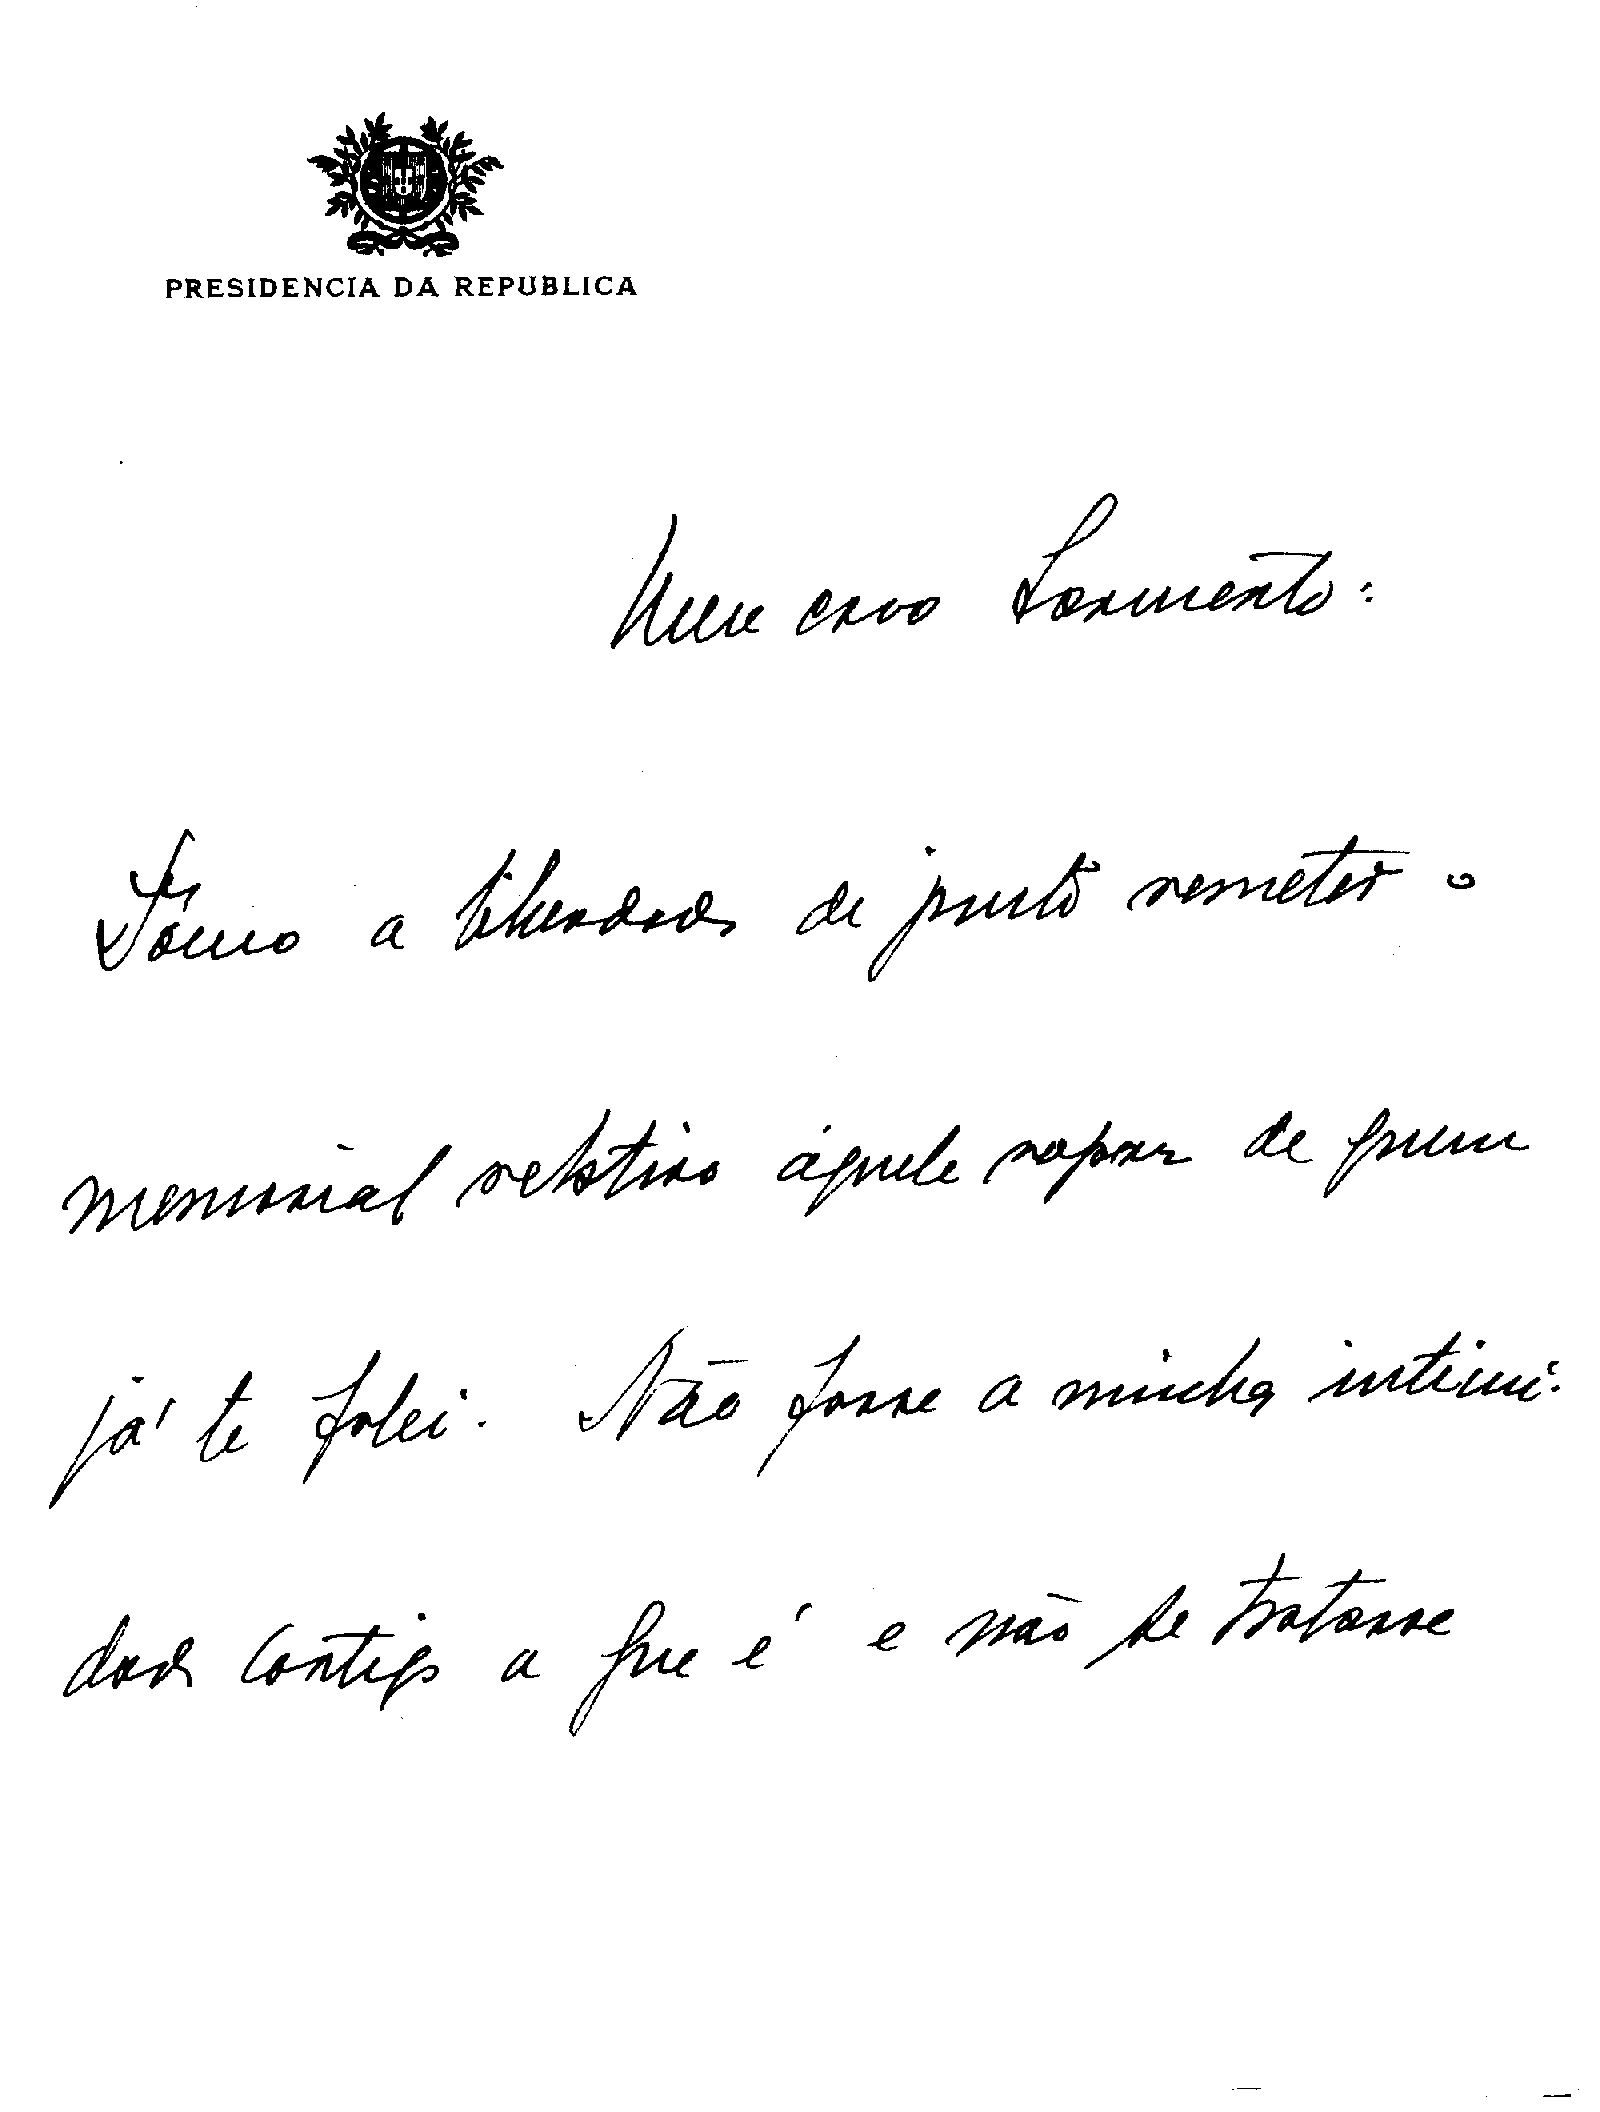 PRESIDENCIA DA REPUBLICA
Meu caro Sarmento:
Tômo a liberdade de junto remeter o
memorial relativo àquele rapaz de quem
já te falei. Não fosse a minha intimi-
dade contigo a que é e não se tratasse